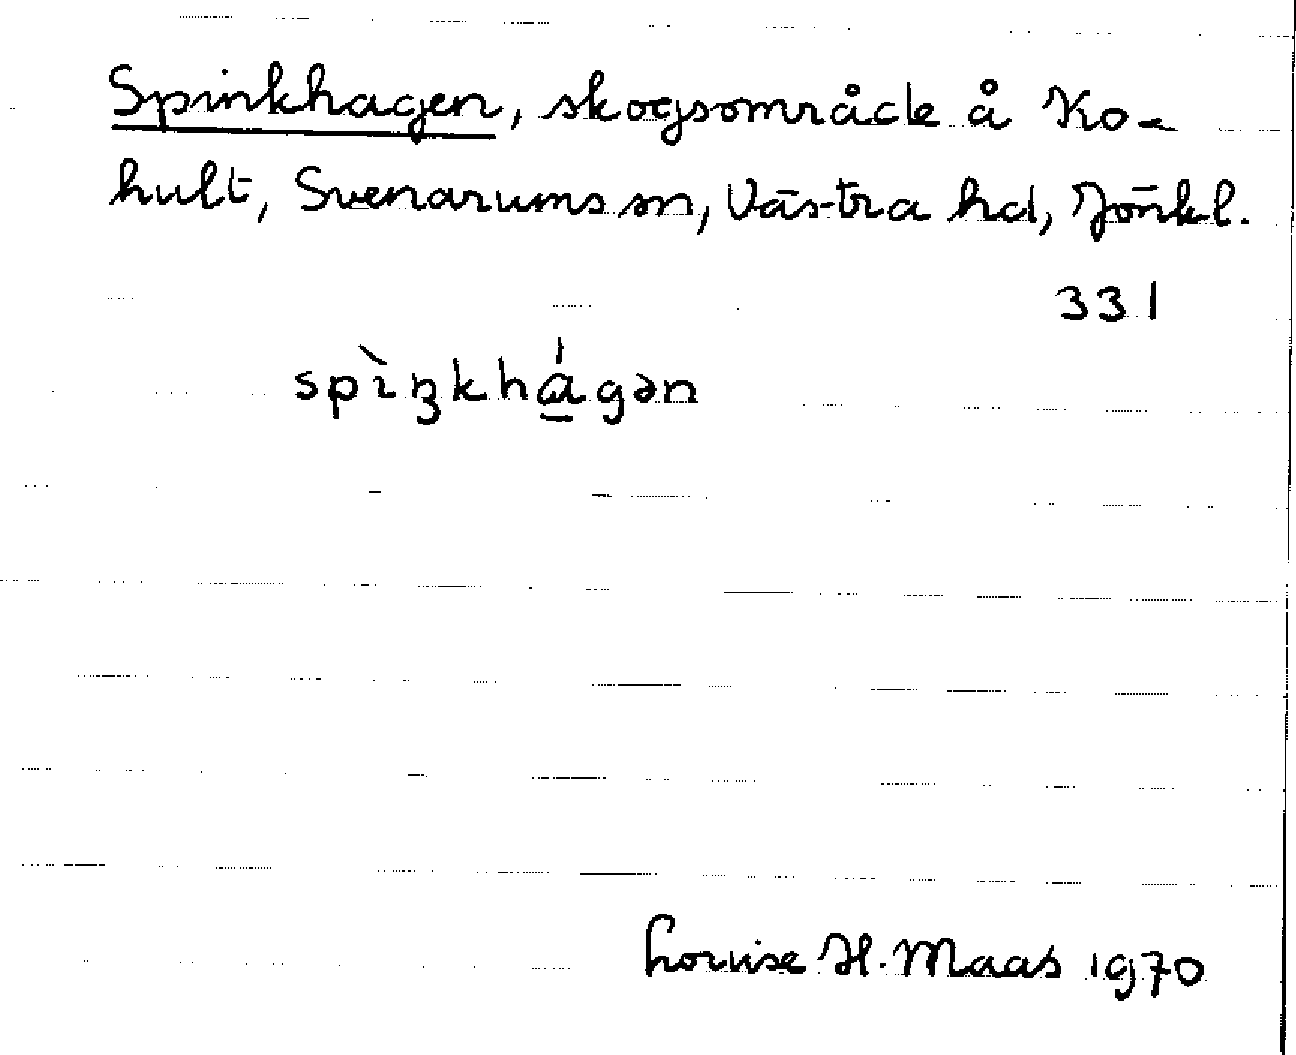 Spinkhagen, skogsområde å Ko-
hult, Svenarums sn, Västra hd, Jönkl.
331
spìŋkhág̱ən
Louise H. Maas 1970